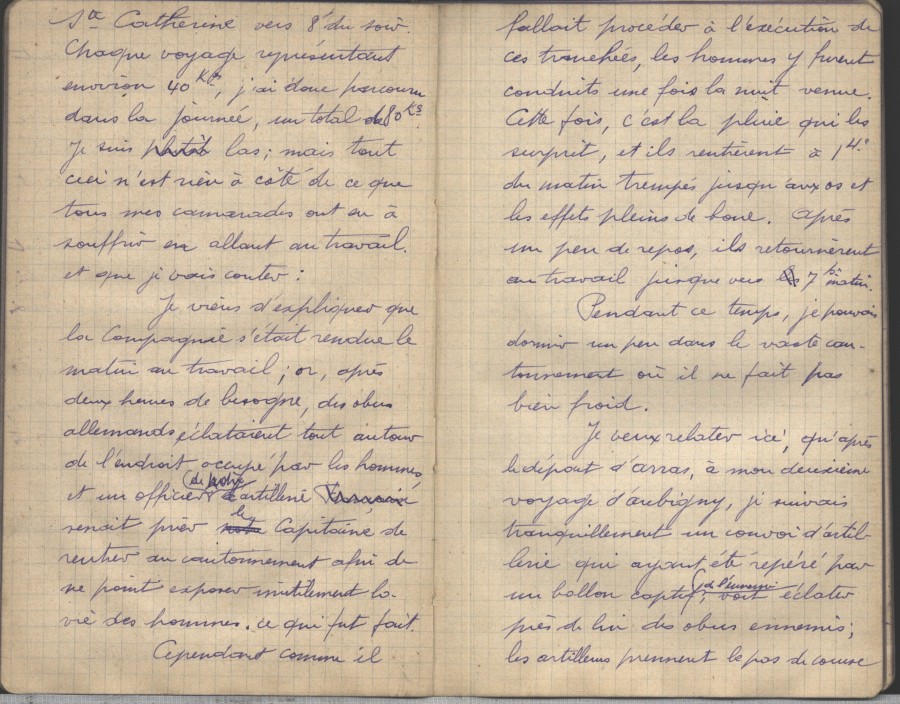 Ste Catherine vers 8h du soir.
Chaque voyage représentant
environ 40 Kts, j'ai donc parcouru
dans la journée, un total de 80 Ks.
Je suis plutôt las; mais tout
ceci n'est rien à côté de ce que
tous mes camarades ont eu à
souffrir en allant au travail.
et que je vais conter:
Je viens d'expliquer que
la Compagnie s'était rendue le
matin au travail; or, après
deux heures de besogne, des obus
allemands éclataient tout autour
de l'endroit occupé par les hommes
et un officier d'artillerie
venait prier le Capitaine de
rentrer au cantonnement afin de
ne point exposer inutilement la
vie des hommes. ce qui fut fait.
Cependant comme il
fallait procéder à l'exécution de
ces tranchées, les hommes y furent
conduits une fois la nuit venue.
Cette fois, c'est la pluie qui les
surprit, et ils rentrèrent à 1 H.
du matin trempés jusqu'aux os et
les effets pleins de boue. Après
un peu de repos, ils retournèrent
au travail jusque vers 7 h matin.
Pendant ce temps, je pouvais
dormir un peu dans le vaste can-
tonnement où il ne fait pas
bien froid.
Je veux relater ici, qu'après
le départ d'Arras, à mon deuxième
voyage d'aubigny, je suivais
tranquillement un convoi d'artil-
lerie qui ayant été repéré par
un ballon captif (de l'ennemi), voit éclater
près de lui des obus ennemis;
les artilleurs prennent le pas de course